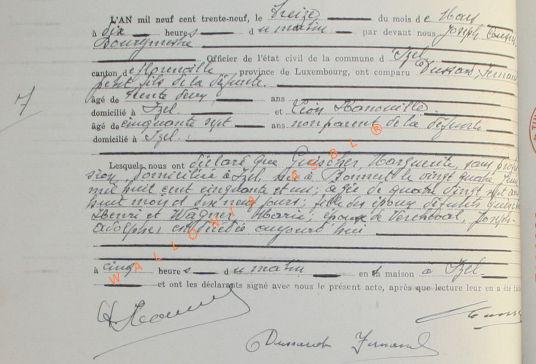 L'AN mil neuf cent trente-neuf, le treize du mois de Mars
à dix heures du matin par devant nous, Joseph
Bourgmestre
Officier de l'état civil de la commune d'Izel
canton de Florenville province de Luxembourg, ont comparu Dussard Fernand
petit fils de la défunte
âgé de trente deux ans
domicilié à Izel et Léon Hanouille
âgé de cinquante sept ans non parent de la défunte
domicilié à Izel
Lesquels nous ont déclaré que Marguerite, sans profes-
sion, domiciliée à Izel, née à le vingt quatre
mil huit cent cinquante et un; âgée de quatre vingt sept ans
huit mois et dix neuf jours; fille des époux défunts
Henri et Wagner Marie; épouse de Joseph-
adolphe; est décédée aujourd'hui
à cinq heures du matin en sa maison à Izel
et ont les déclarants signé avec nous le présent acte, après que lecture leur en a été fai
7
WALLONIA ASBL ®
Dussard Fernand